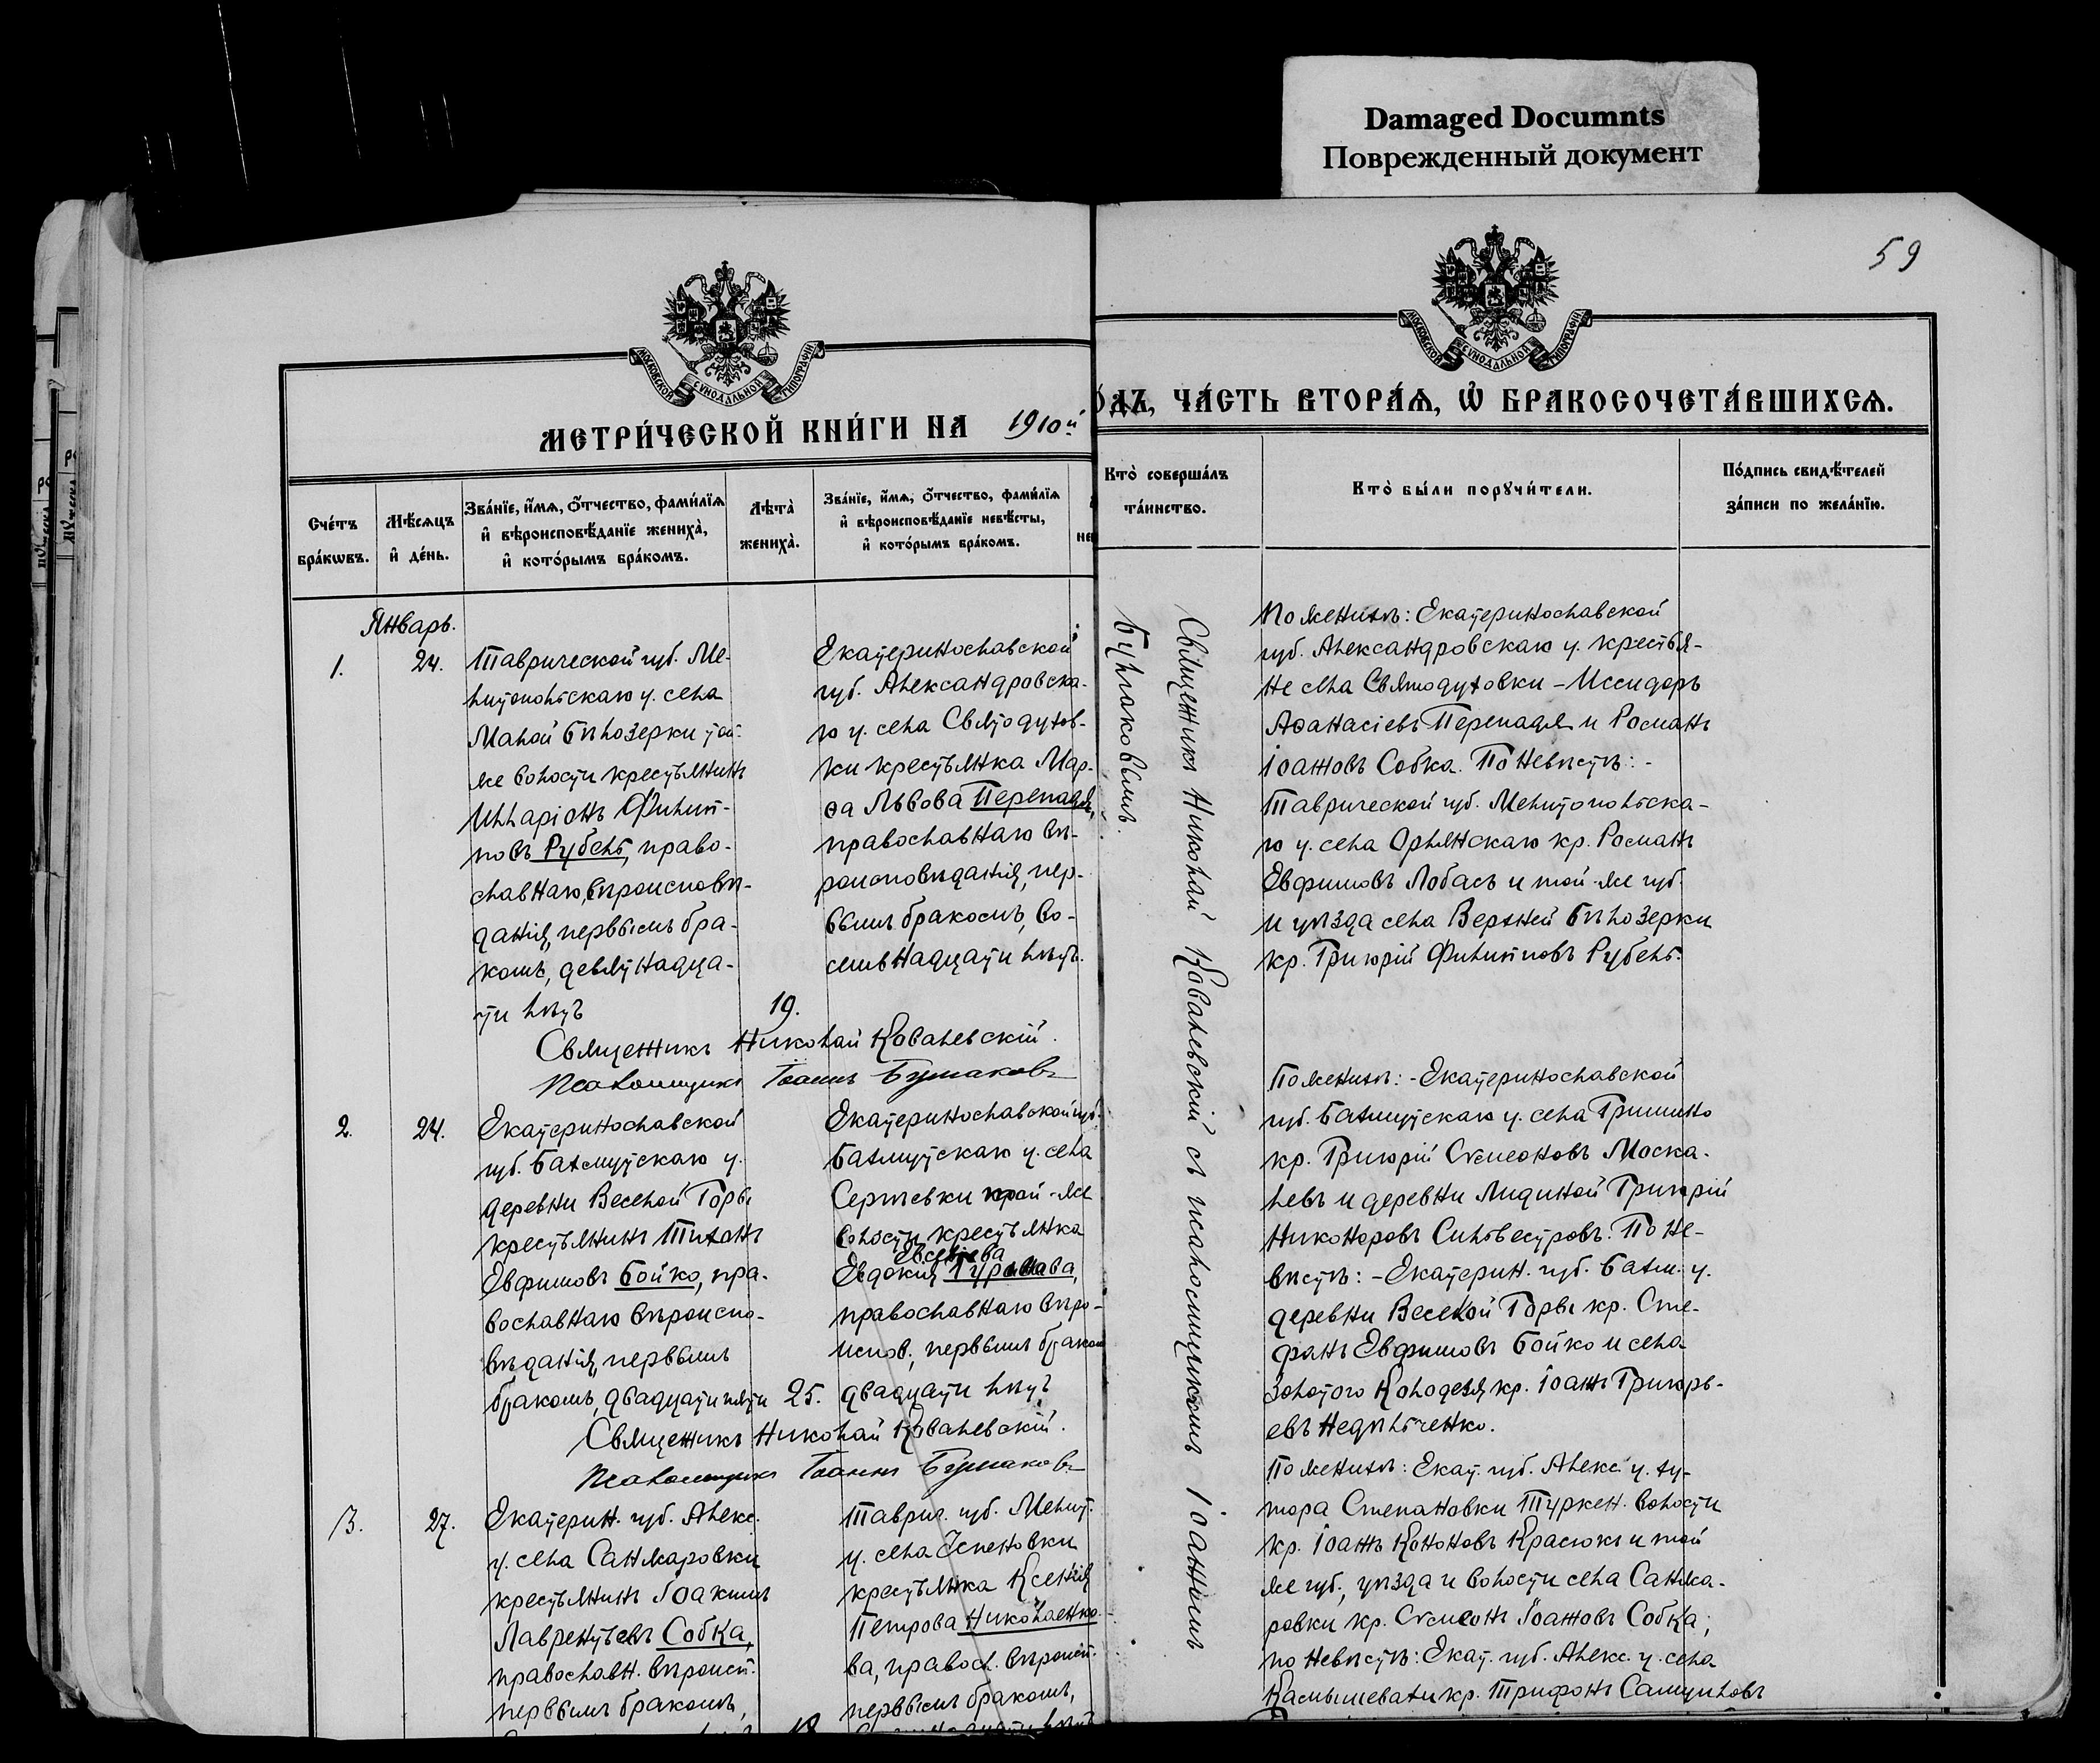 Damaged Documnts
Поврежденный документ
59
МОСКОВСКОЙ СУНОДАЛЬНОЙ ТИПОГРАФІИ
МОСКОВСКОЙ СУНОДАЛЬНОЙ ТИПОГРАФІИ
МЕТРИ́ЧЕСКОЙ КНИ́ГИ НА 1910й
О́ДЪ, ЧА́СТЬ ВТОРА́Ѧ, Ѽ БРАКОСОЧЕТА́ВШИХСѦ.
Сче́тъ
бра́кѡвъ.
Мѣ́сѧцъ
и҆ де́нь.
Зва́нїе, и҆́мѧ, ѻ҆́тчество, фами́лїѧ
и҆ вѣроисповѣ́данїе жениха̀,
и҆ кото́рымъ бра́комъ.
Лѣта̀
жениха̀.
Зва́нїе, и҆́мѧ, ѻ҆́тчество, фами́лїѧ
и҆ вѣроисповѣ́данїе невѣ́сты,
и҆ кото́рымъ бра́комъ.
Кто̀ соверша́лъ
та́инство.
Кто̀ бы́ли порꙋчи́тели.
По́дпись свидѣ́телей
за́писи по жела́нїю.
Январь.
1.
24.
Таврической губ. Ме-
литопольскаго у. села
Малой Бѣлозерки той-
же волости крестьянинъ
Илларіонъ Филип-
повъ Рубель, право-
славнаго, вѣроисповѣ-
данія, первымъ бра-
комъ, девятнадца-
ти лѣтъ
19.
Екатеринославской
губ. Александровска-
го у. села Святодухов-
ки крестьянка Мар-
ѳа Львова Перепадя,
православнаго вѣ-
роисповѣданія, пер-
вымъ бракомъ, во-
семьнадцати лѣтъ.
Священникъ Николай Ковалевскій.
Псаломщикъ Іоаннъ Булгаковъ
Священникъ Николай Ковалевскій съ псаломщикомъ Іоанномъ
Булгаковымъ.
По женихѣ: Екатеринославской
губ. Александровскаго у. крестья-
не села Святодуховки - Иссидоръ
Аѳанасіевъ Перепадя и Романъ
Іоанновъ Собка. По невѣстѣ: -
Таврической губ. Мелитопольска-
го у. села Орлянскаго кр. Романъ
Евфимовъ Лобасъ и той-же губ.
и уѣзда села Верхней Бѣлозерки
кр. Григорій Филипповъ Рубель.
2.
24.
Екатеринославской
губ. Бахмутскаго у.
деревни Веселой Горы
крестьянинъ Тихонъ
Евфимовъ Бойко, пра-
вославнаго вѣроиспо-
вѣданія, первымъ
бракомъ, двадцати пяти
25.
Екатеринославской губ.
Бахмутскаго у. села
Сергѣевки той-же
волости крестьянка
Евдокія
православнаго вѣро-
испов., первымъ браком
двадцати лѣтъ
Священникъ Николай Ковалевскій.
Псаломщикъ Іоаннъ Булгаковъ
По женихѣ: - Екатеринославской
губ. Бахмутскаго у. села Гришино
кр. Григорій Симеоновъ Моска-
левъ и деревни Лидиной Григорій
Никоноровъ Сильвестровъ. По не-
вѣстѣ: - Екатерин. губ. Бахм. у.
деревни Веселой Горы кр. Сте-
фанъ Евфимовъ Бойко и села
Золотого Колодезя кр. Іоаннъ Григорь-
евъ Недѣльченко.
3.
27.
Екатерин. губ. Алекс.
у. села Санжаровки
крестьянинъ Іоакимъ
Лаврентьевъ Собка,
православн. вѣроисп.
первымъ бракомъ,
18
Таврич. губ. Мелит.
у. села Успеновки
крестьянка Ксенія
Петрова Николаенко-
ва, правосл. вѣроисп.
первымъ бракомъ,
По женихѣ: Екат. губ. Алекс. у. ху-
тора Степановки Туркен. волости
кр. Іоаннъ Кононовъ Красюкъ и той
же губ., уѣзда и волости села Санжа-
ровки кр. Симеонъ Іоанновъ Собка;
по невѣстѣ: Екат. губ. Алекс. у. села
Камышевахи кр. Трифонъ Самуиловъ